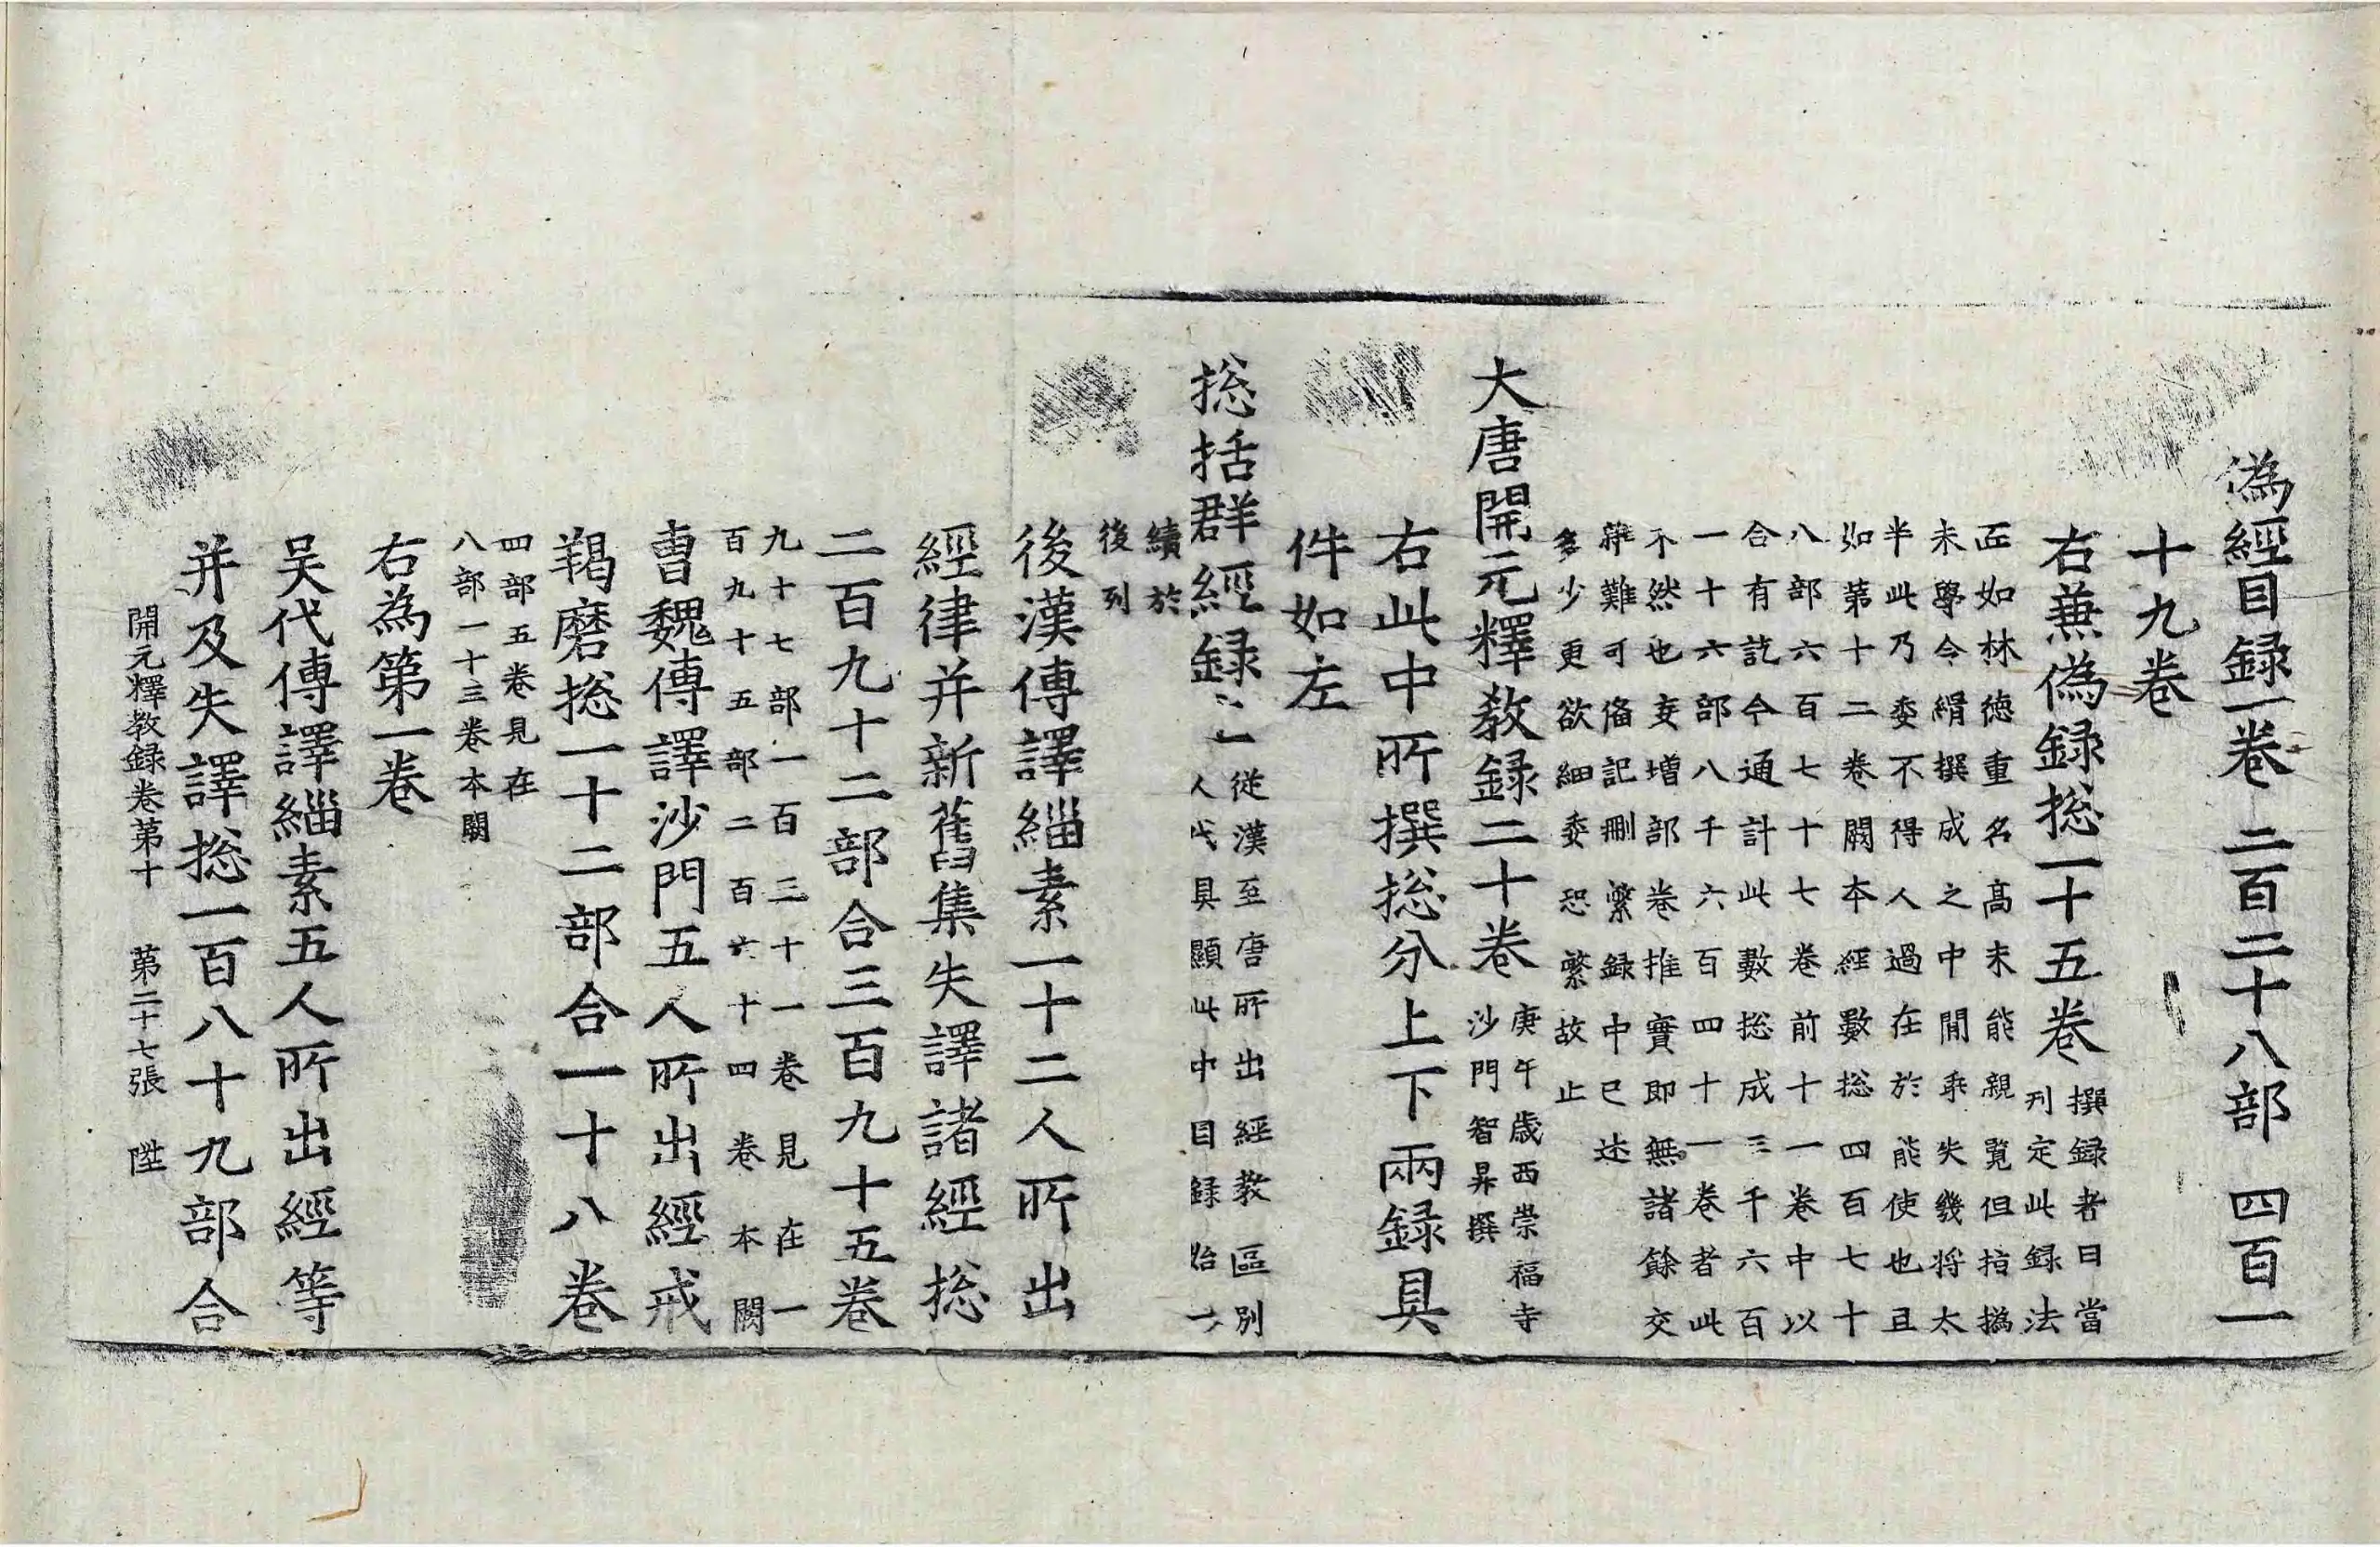 偽經目録一卷 二百二十八部 四百一
十九卷
右兼偽録捴一十五卷 撰録者曰當
刋定此録法
匠如林德重名髙未能親覽但指撝
未學令緝撰成之中閒乖失幾將太
半此乃委不得人過在於能使也且
如第十二卷闕本經數捴四百七十
八部六百七十七卷前十一卷中以
合有訖今通計此數捴成三千六百
一十六部八千六百四十一卷者此
不然也妄増部卷推實即無諸餘交
雜難可俻記刪繁録中已述
多少更欲細委恐繁故止
大唐開元釋教録二十卷 庚午歳西崇福寺
沙門智昇撰
右此中所撰捴分上下兩録具
件如左
捴括群經録上一 從漢至唐所出經教區別
人代具顯此中目録始一
續於
後列
後漢傳譯緇素一十二人所出
經律并新舊集失譯諸經捴
二百九十二部合三百九十五卷
九十七部一百三十一卷見在一
百九十五部二百六十四卷本闕
曹魏傳譯沙門五人所出經戒
羯磨捴一十二部合一十八卷
四部五卷見在
八部一十三卷本闕
右為第一卷
吴代傳譯緇素五人所出經等
并及失譯捴一百八十九部合
開元釋教録卷第十 第二十七張 陞